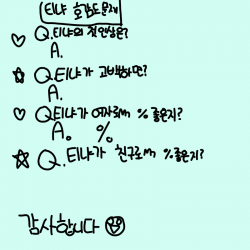 티냐 호감도문제
Q.티냐의 첫인상은?
A.
Q.티냐가 고백하면?
A.
Q.티냐가 여자로써 % 좋은지?
A. %
Q.티냐가 친구로써 %좋은지?
감사합니다